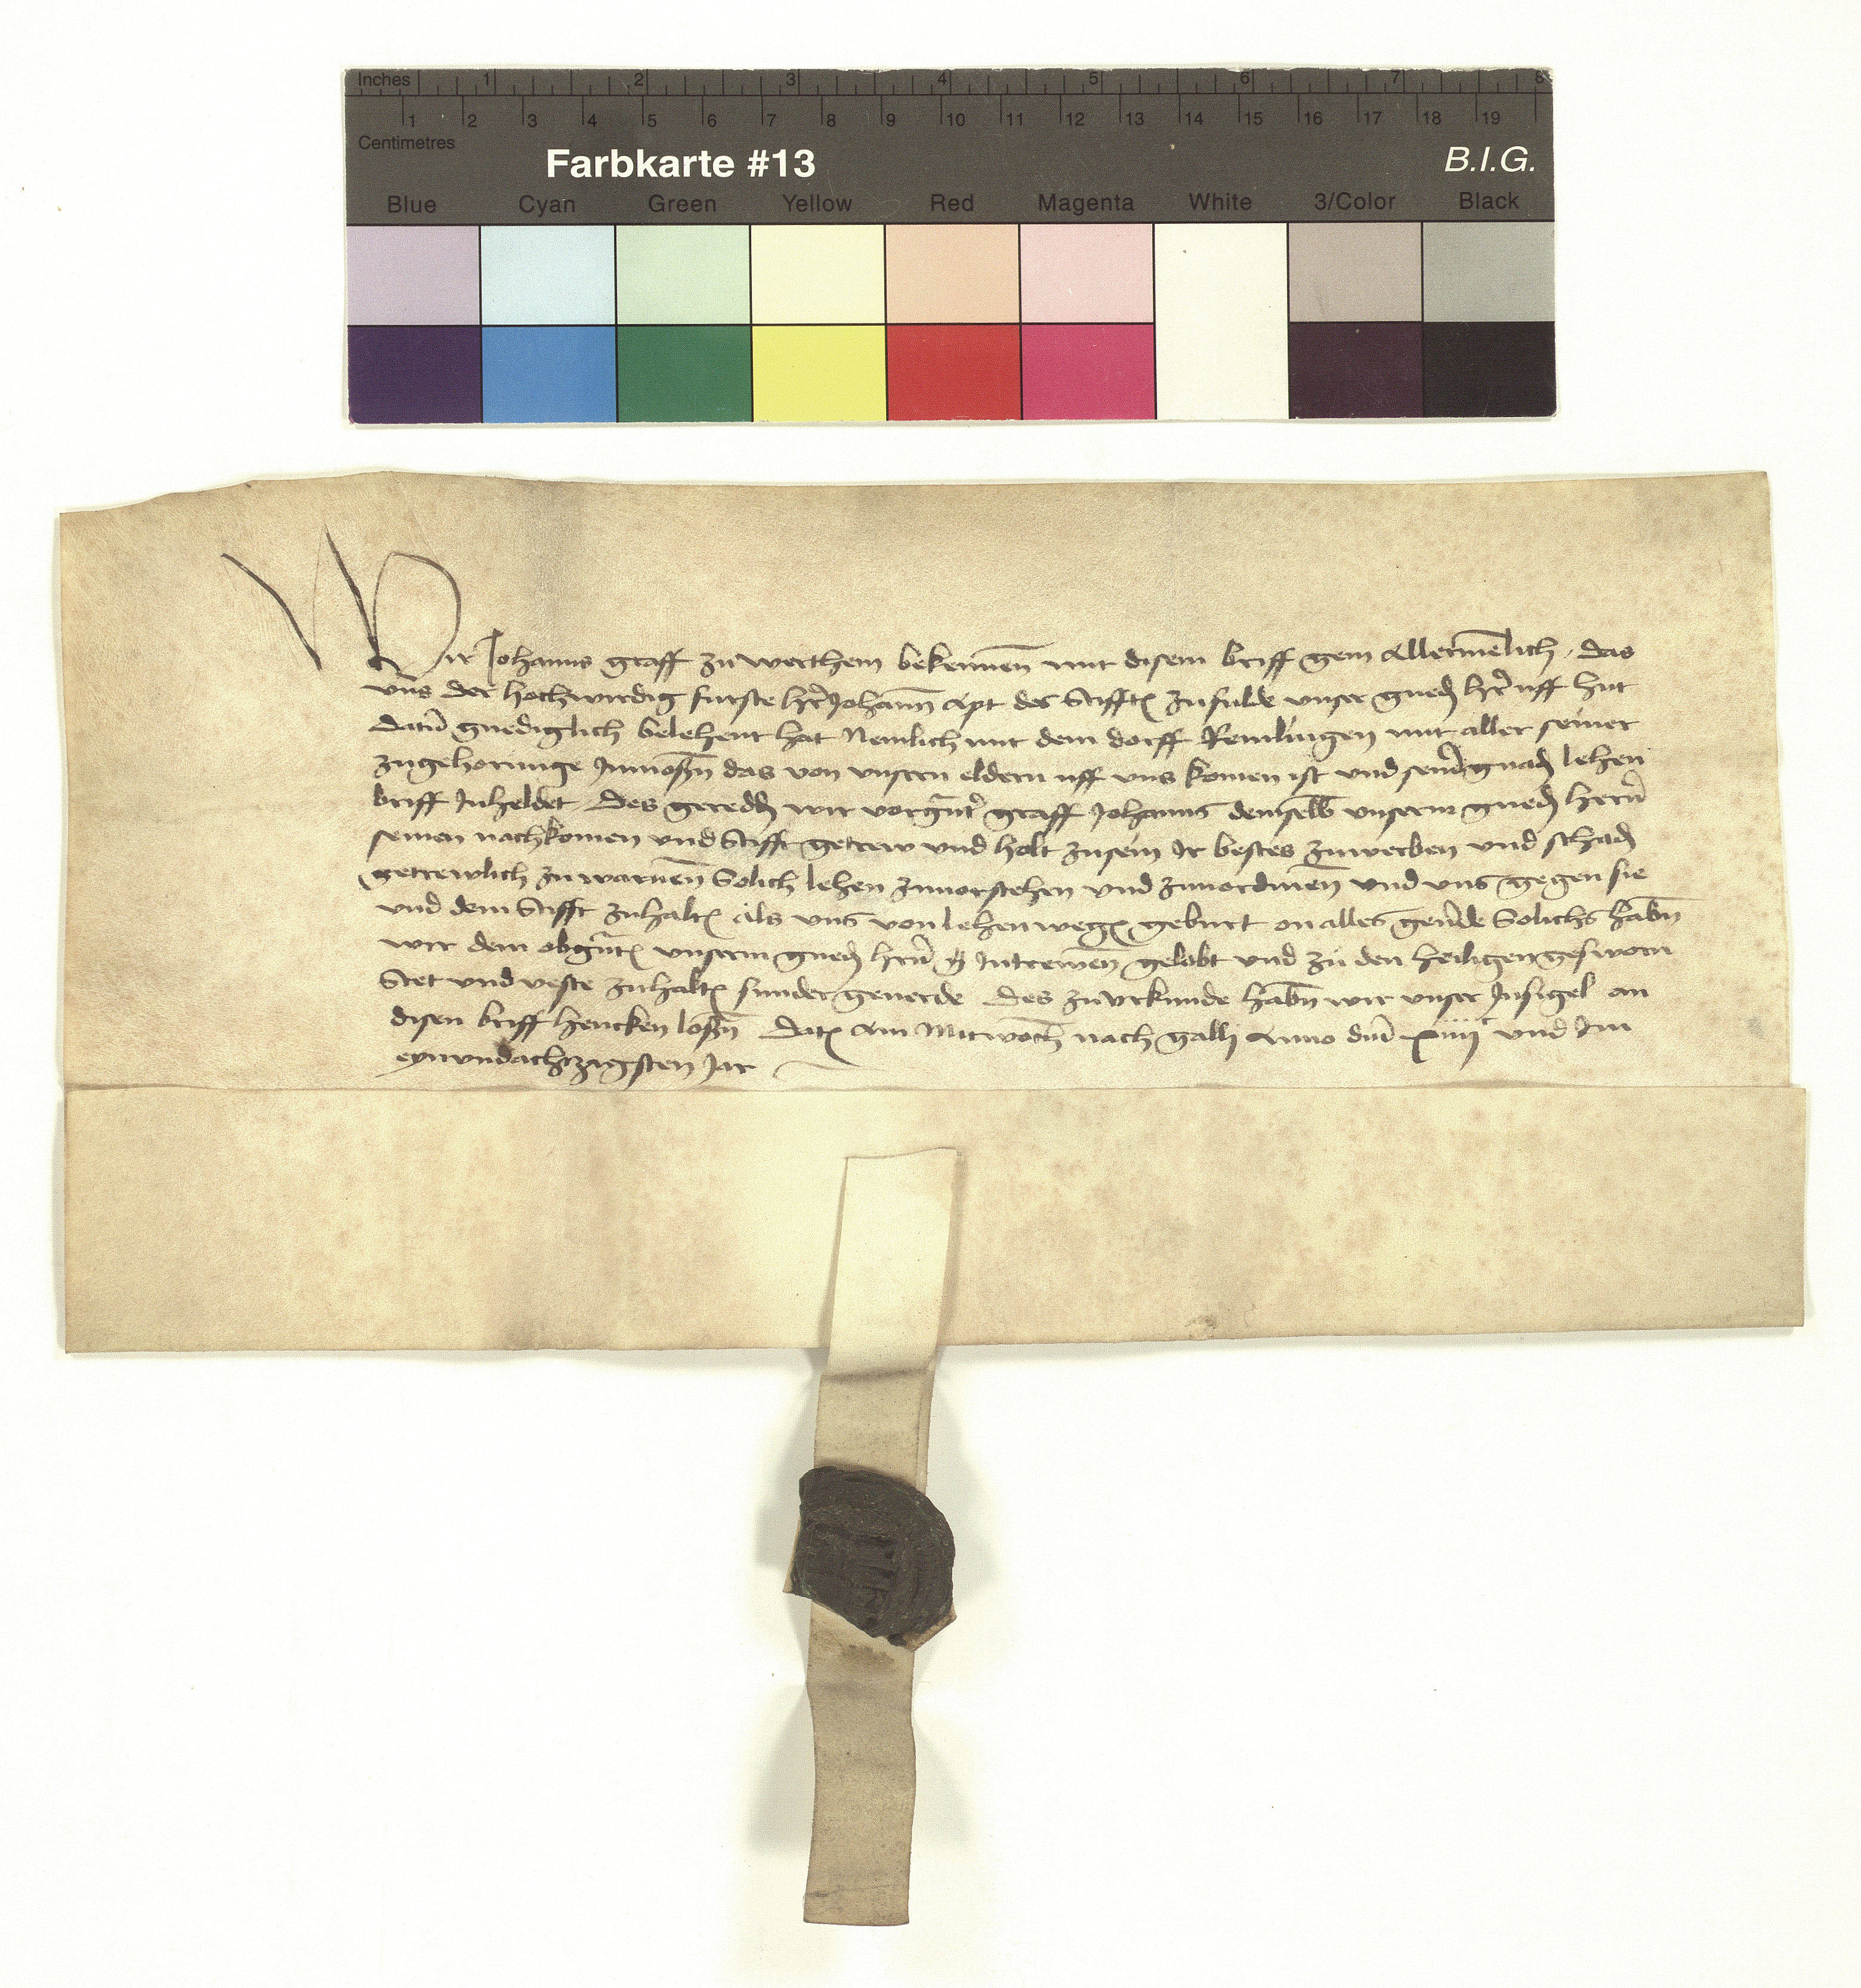 Inches 1 2 3 4 5 6 7 8
1 2 3 4 5 6 7 8 9 10 11 12 13 14 15 16 17 18 19
Centimetres
Farbkarte #13 B.I.G.
Blue Cyan Green Yellow Red Magenta White 3/Color Black
Wir Johanns graff zu werthem bekennen̄ mit disem briff gein Allermēlich, das
vns der hochwirdig furste her Johann̄ Apt des Stifftꝭ zu fulde vnser gned hr̄ uff hut
datū gnediglich belehent hat Nemlich mit dem dorff Remlingen mit aller seiner
zugehorunge Inmoßn̄ das von vnsern eldern uff vns komen ist vnd seiner gnad lehen
briff Inheldet Des geredd wir vorgnt̄er graff Johanns demselb̄ vnserm gned herrn̄
seinen nachkomen vnd Stifft getrew vnd holt zusein Ir bestes zuwerben vnd schad
getrewlich zu warnen̄ Solich lehen zuuorstehen vnd zuuordinen̄ vnd vns gegen sie
vnd dem Stifft zuhaltꝭ als vns von lehen wegꝭ geburt on alles geūde Solichs hab̄n
wir dem obgn̄tꝭ vnserm gned hrn̄ Intrewen̄ gelobt vnd zu den heiligen gesworn
Stet vnd veste zuhaltꝭ sunder geuerde Des zu vrkunde hab̄n wir vnser Insigel an
disen briff hencken loßn̄ Datꝭ am Mitwoch nach galli Anno dn̄i xiiijc vnd Im
eynvndachtzigsten Jar